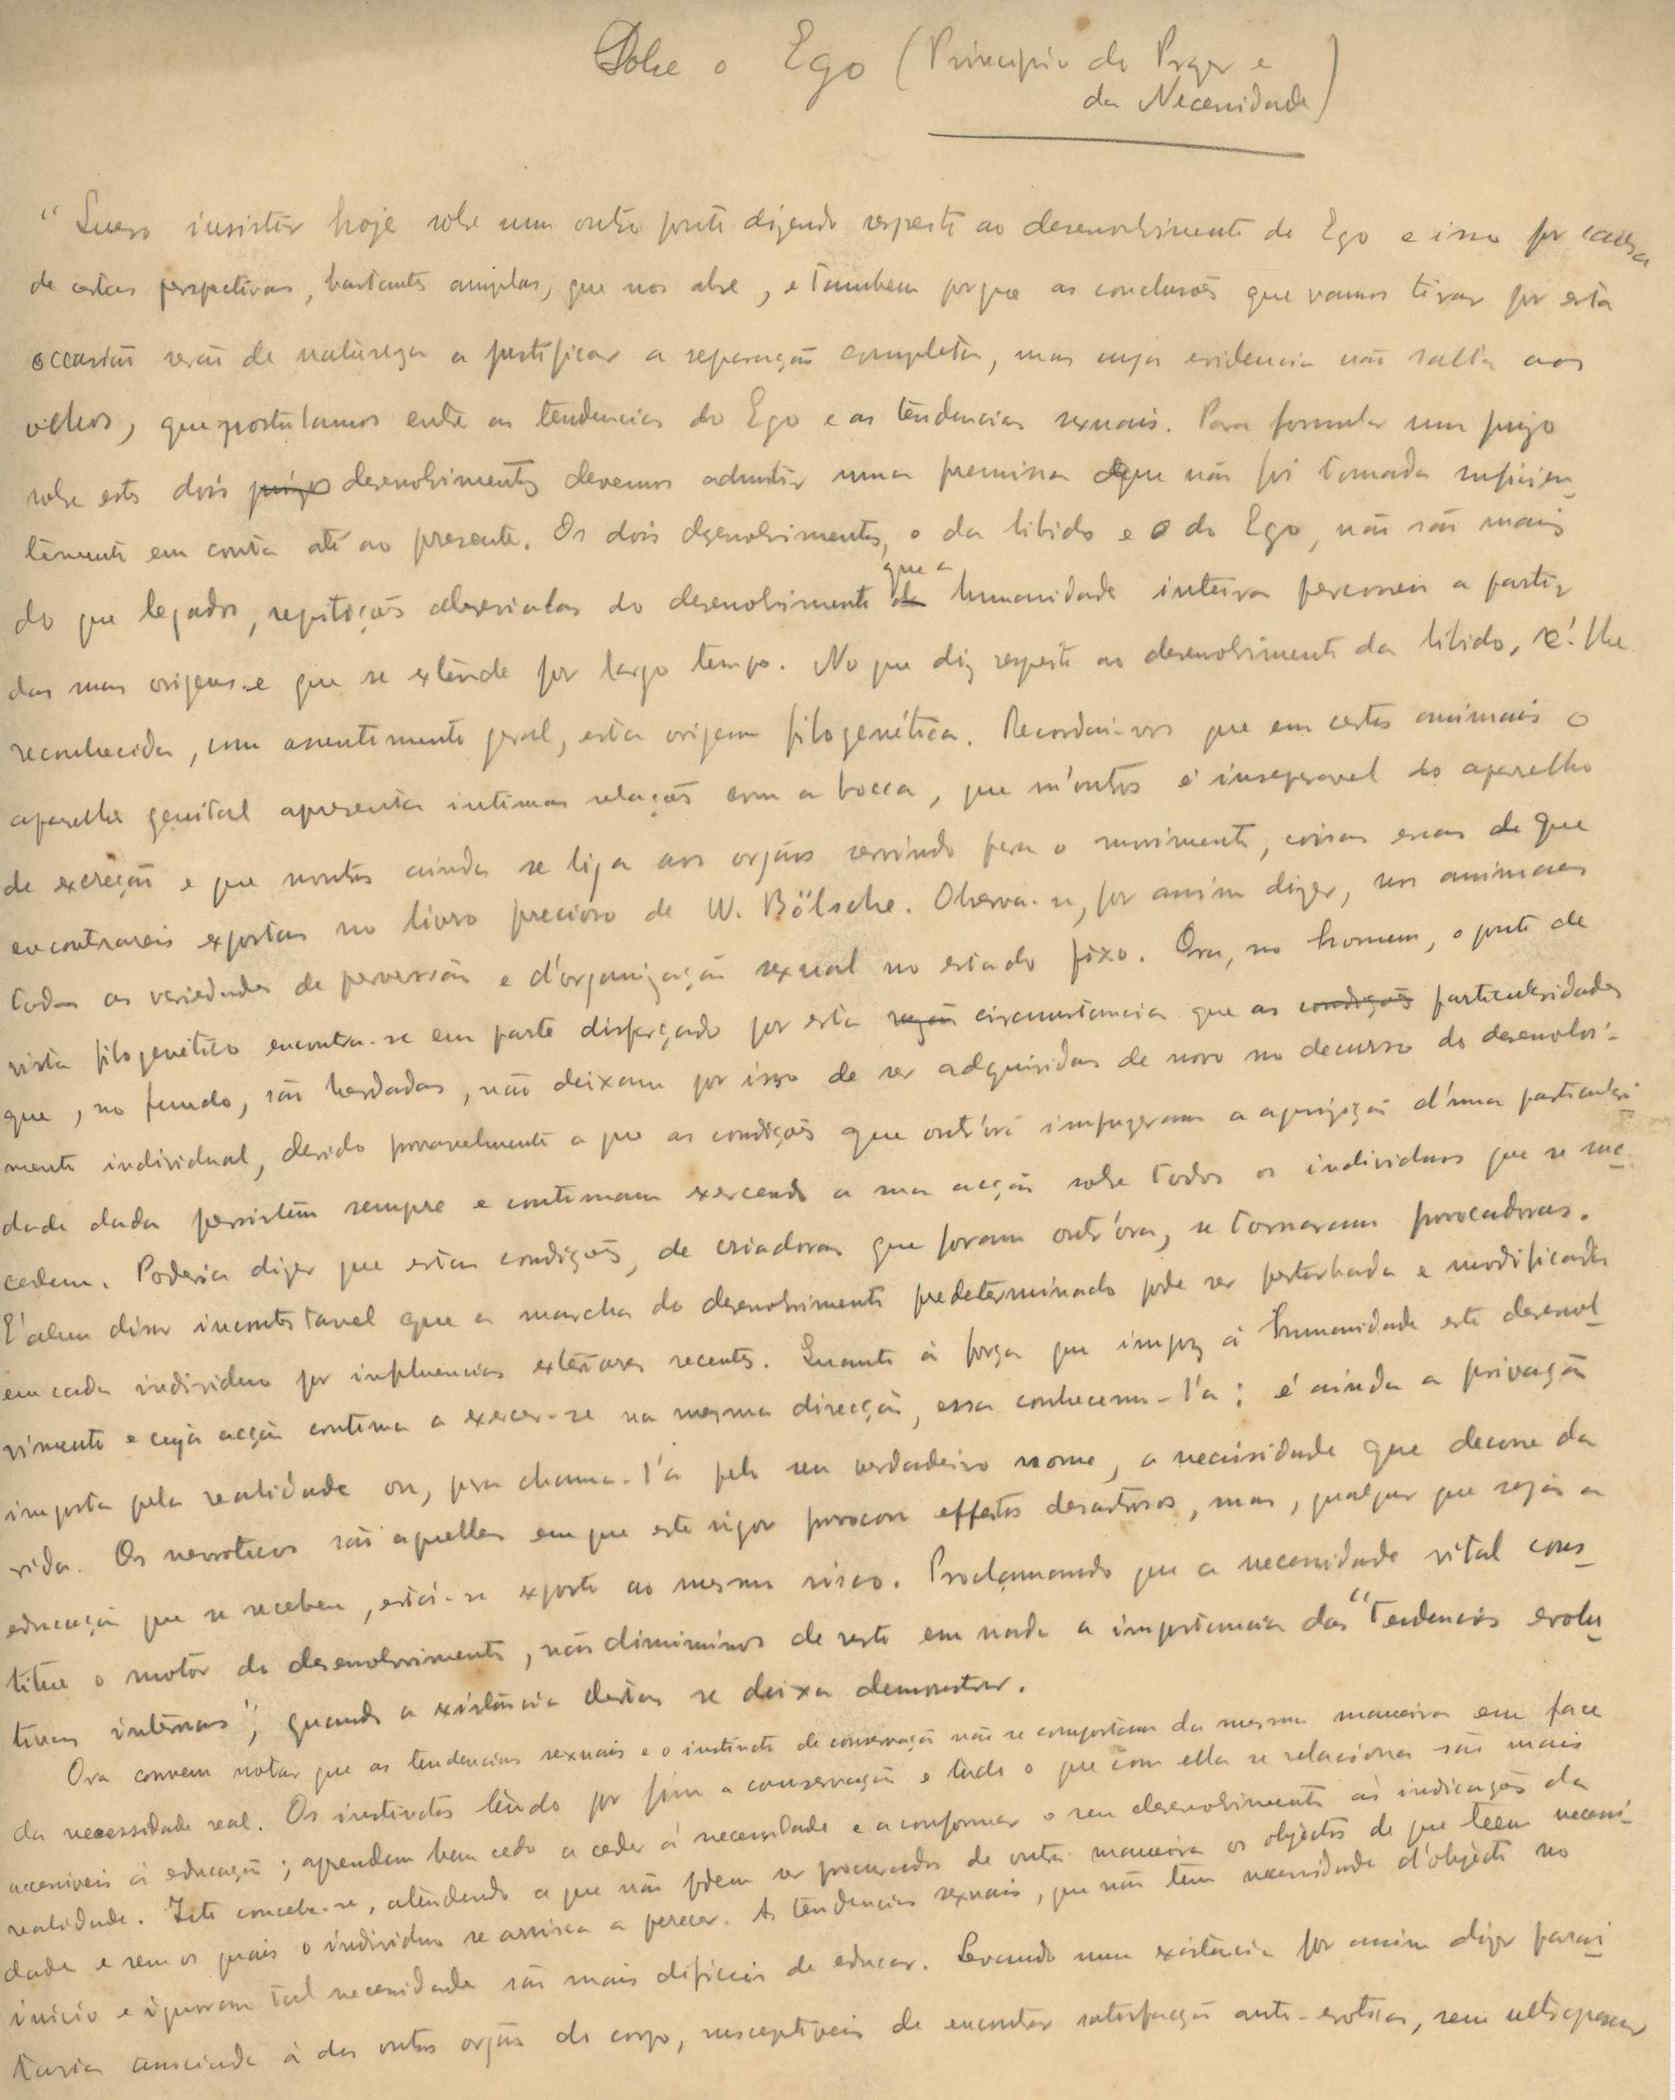 Sobre o Ego (Principio do Prazer e
da Necessidade)
"Quero insistir hoje sobre um outro ponto dizendo respeito ao desenvolvimento do Ego e isso por causa
de certas perspectivas, bastantes amplas, que nos abre, e tambem porque as conclusões que vamos tirar por esta
occasião serão de natureza a justificar a separação completa, mas cuja evidencia não salta aos
olhos, que postulamos entre as tendencias do Ego e as tendencias sexuais. Para formular um juizo
sobre estes dois juizo desenvolvimentos devemos admitir uma premissa que não foi tomada suficien-
temente em conta até ao presente. Os dois desenvolvimentos, o da libido e o do Ego, não são mais
do que legados, repetições abreviadas do desenvolvimento da que a humanidade inteira percorreu a partir
das suas origens e que se extende por largo tempo. No que diz respeito ao desenvolvimento da libido, é-lhe
reconhecida, com assentimento geral, esta origem filogenética. Recordai-vos que em certos animais o
aparelho genital apresenta intimas relações com a bocca, que n'outros é inseparavel do aparelho
de excreção e que noutros ainda se liga aos orgãos servindo para o movimento, coisas essas de que
encontrareis expostas no livro precioso de W. Bölsche. Observa-se, por assim dizer, nos animaes
todas as variedades de perversão e d'organização sexual no estado fixo. Ora, no homem, o ponto de
vista filogenético encontra-se em parte disfarçado por esta razão circumstancia que as condições particularidades
que, no fundo, são herdadas, não deixam por isso de ser adquiridas de novo no decurso do desenvolvi-
mento individual, devido provavelmente a que as condições que outr'ora impuzeram a aquisição d'uma particulari-
dade dada persistem sempre e continuam exercendo a sua acção sobre todos os individuos que se suc-
cedem. Poderia dizer que estas condições, de criadoras que foram outr'ora, se tornaram provocadoras.
E' alem disso incontestavel que a marcha do desenvolvimento predeterminado pode ser perturbada e modificada
em cada individuo por influencias exteriores recentes. Quanto á força que impoz á humanidade este desenvol-
vimento e cuja acção continua a exercer-se na mesma direcção, essa conhecemo-l'a: é ainda a privação
imposta pela realidade ou, para chama-l'a pelo seu verdadeiro nome, a necessidade que decorre da
vida. Os nevroticos são aquelles em que este rigor provocou effeitos desastrosos, mas, qualquer que seja a
educação que se recebeu, está-se exposto ao mesmo risco. Proclamando que a necessidade vital cons-
titue o motor do desenvolvimento, não diminuimos de resto em nada a importancia das "tendencias evolu-
tivas internas", quando a existencia destas se deixa demonstrar.
Ora convem notar que as tendencias sexuais e o instincto de conservação não se comportam da mesma maneira em face
da necessidade real. Os instinctos tendo por fim a conservação e tudo o que com ella se relaciona são mais
accessiveis á educação; aprendem bem cedo a ceder á necessidade e a conformar o seu desenvolvimento ás indicações da
realidade. Isto concebe-se, atendendo a que não podem ser procurados de outra maneira os objectos de que teem necessi-
dade e sem os quais o individuo se arrisca a perecer. As tendencias sexuais, que não têm necessidade d'objecto no
inicio e ignoram tal necessidade são mais dificeis de educar. Levando uma existencia por assim dizer parasi-
taria associada á dos outros orgãos do corpo, susceptiveis de encontrar satisfação auto-erotica, sem ultrapassar